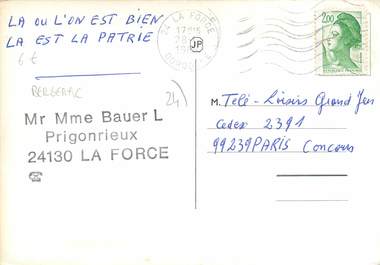 LA OU L'ON EST BIEN
LA EST LA PATRIE
6 €
BERGERAC
24)
Mr Mme Bauer L
Prigonrieux
24130 LA FORCE
24 LA FORCE
JP
DORDOGNE
2,00
M. Télé-Loisirs Grand Jeu
Cedex 2391
99239 PARIS Concours